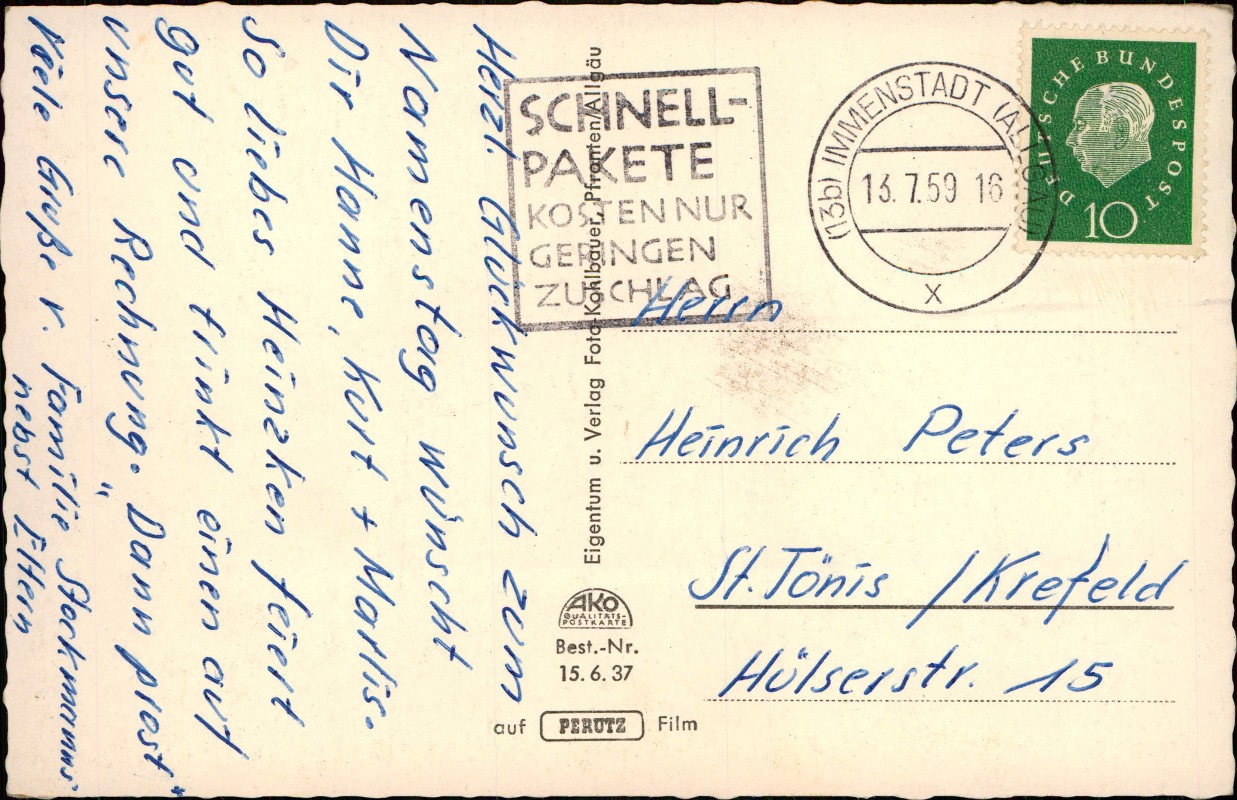 Herzl. Glückwunsch zum
Namenstag wünscht
Dir Hanne, Kurt + Marlis.
So liebes Heinzken feiert
gut und trinkt einen auf
unsere Rechnung. Dann „prost“
Viele Grüße v. Familie Stockmanns
nebst Eltern
SCHNELL-
PAKETE
KOSTEN NUR
GERINGEN
ZUSCHLAG
(13b) IMMENSTADT (ALLGÄU)
13.7.59 16
x
DEUTSCHE BUNDESPOST
10
Eigentum u. Verlag Foto-Kohlbauer, Pfronten/Allgäu
Herrn
Heinrich Peters
St. Tönis / Krefeld
Hülserstr. 15
AKO
QUALITÄTS-
POSTKARTE
Best.-Nr.
15.6.37
auf PERUTZ Film